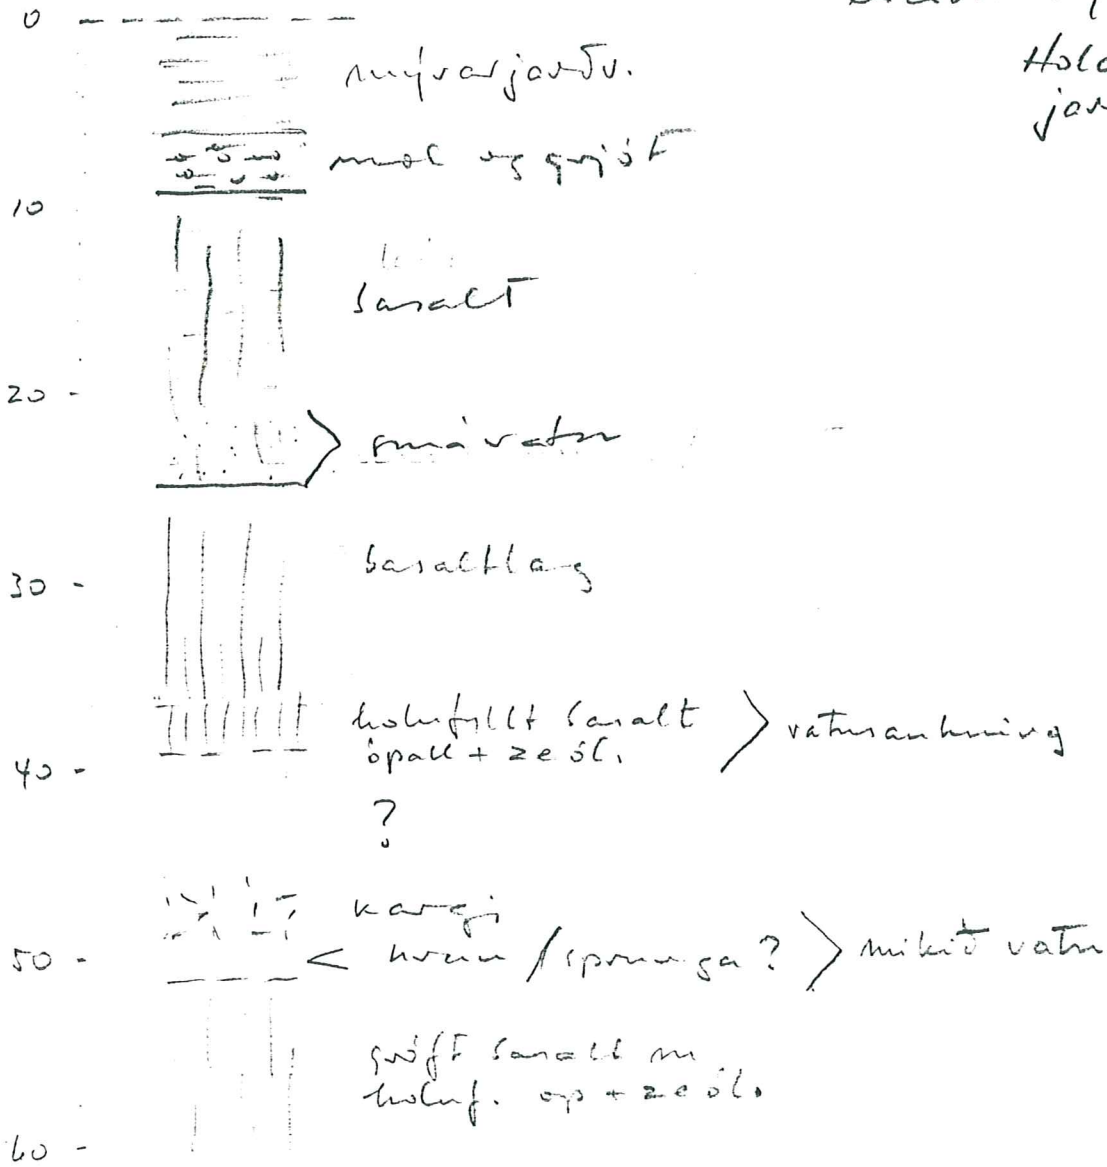 Hola
jar
0
mýrarjarðv.
möl og grjót
10
basalt
20 -
smávatn
basaltlag
30 -
holufyllt basalt
ópall + zeól.
vatnsaukning
40 -
?
kargi
50 -
< hrun / sprunga ?
mikið vatn
gróft basalt m
holuf. op + zeól.
60 -